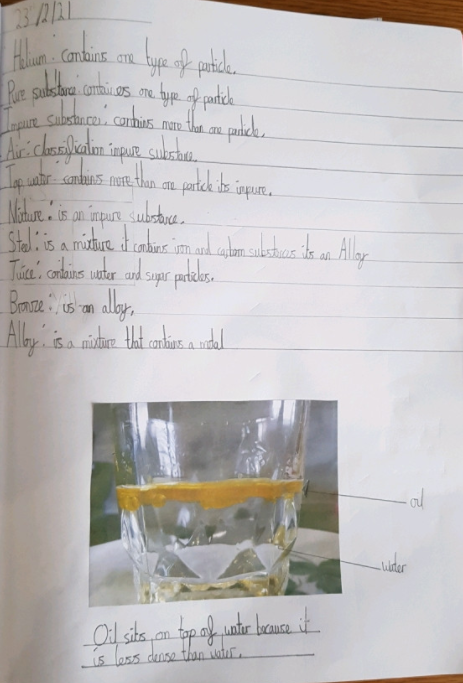 23/2/21
Helium: contains one type of particle.
Pure substance: contains one type of particle
Impure substance: contains more than one particle.
Air: classification impure substance.
Tap water: contains more than one particle its impure.
Mixture: is an impure substance.
Steel: is a mixture it contains iron and carbon substances its an Alloy
Juice: contains water and sugar particles.
Bronze: is an alloy.
Alloy: is a mixture that contains a metal
oil
water
Oil sits on top of water because it
is less dense than water.